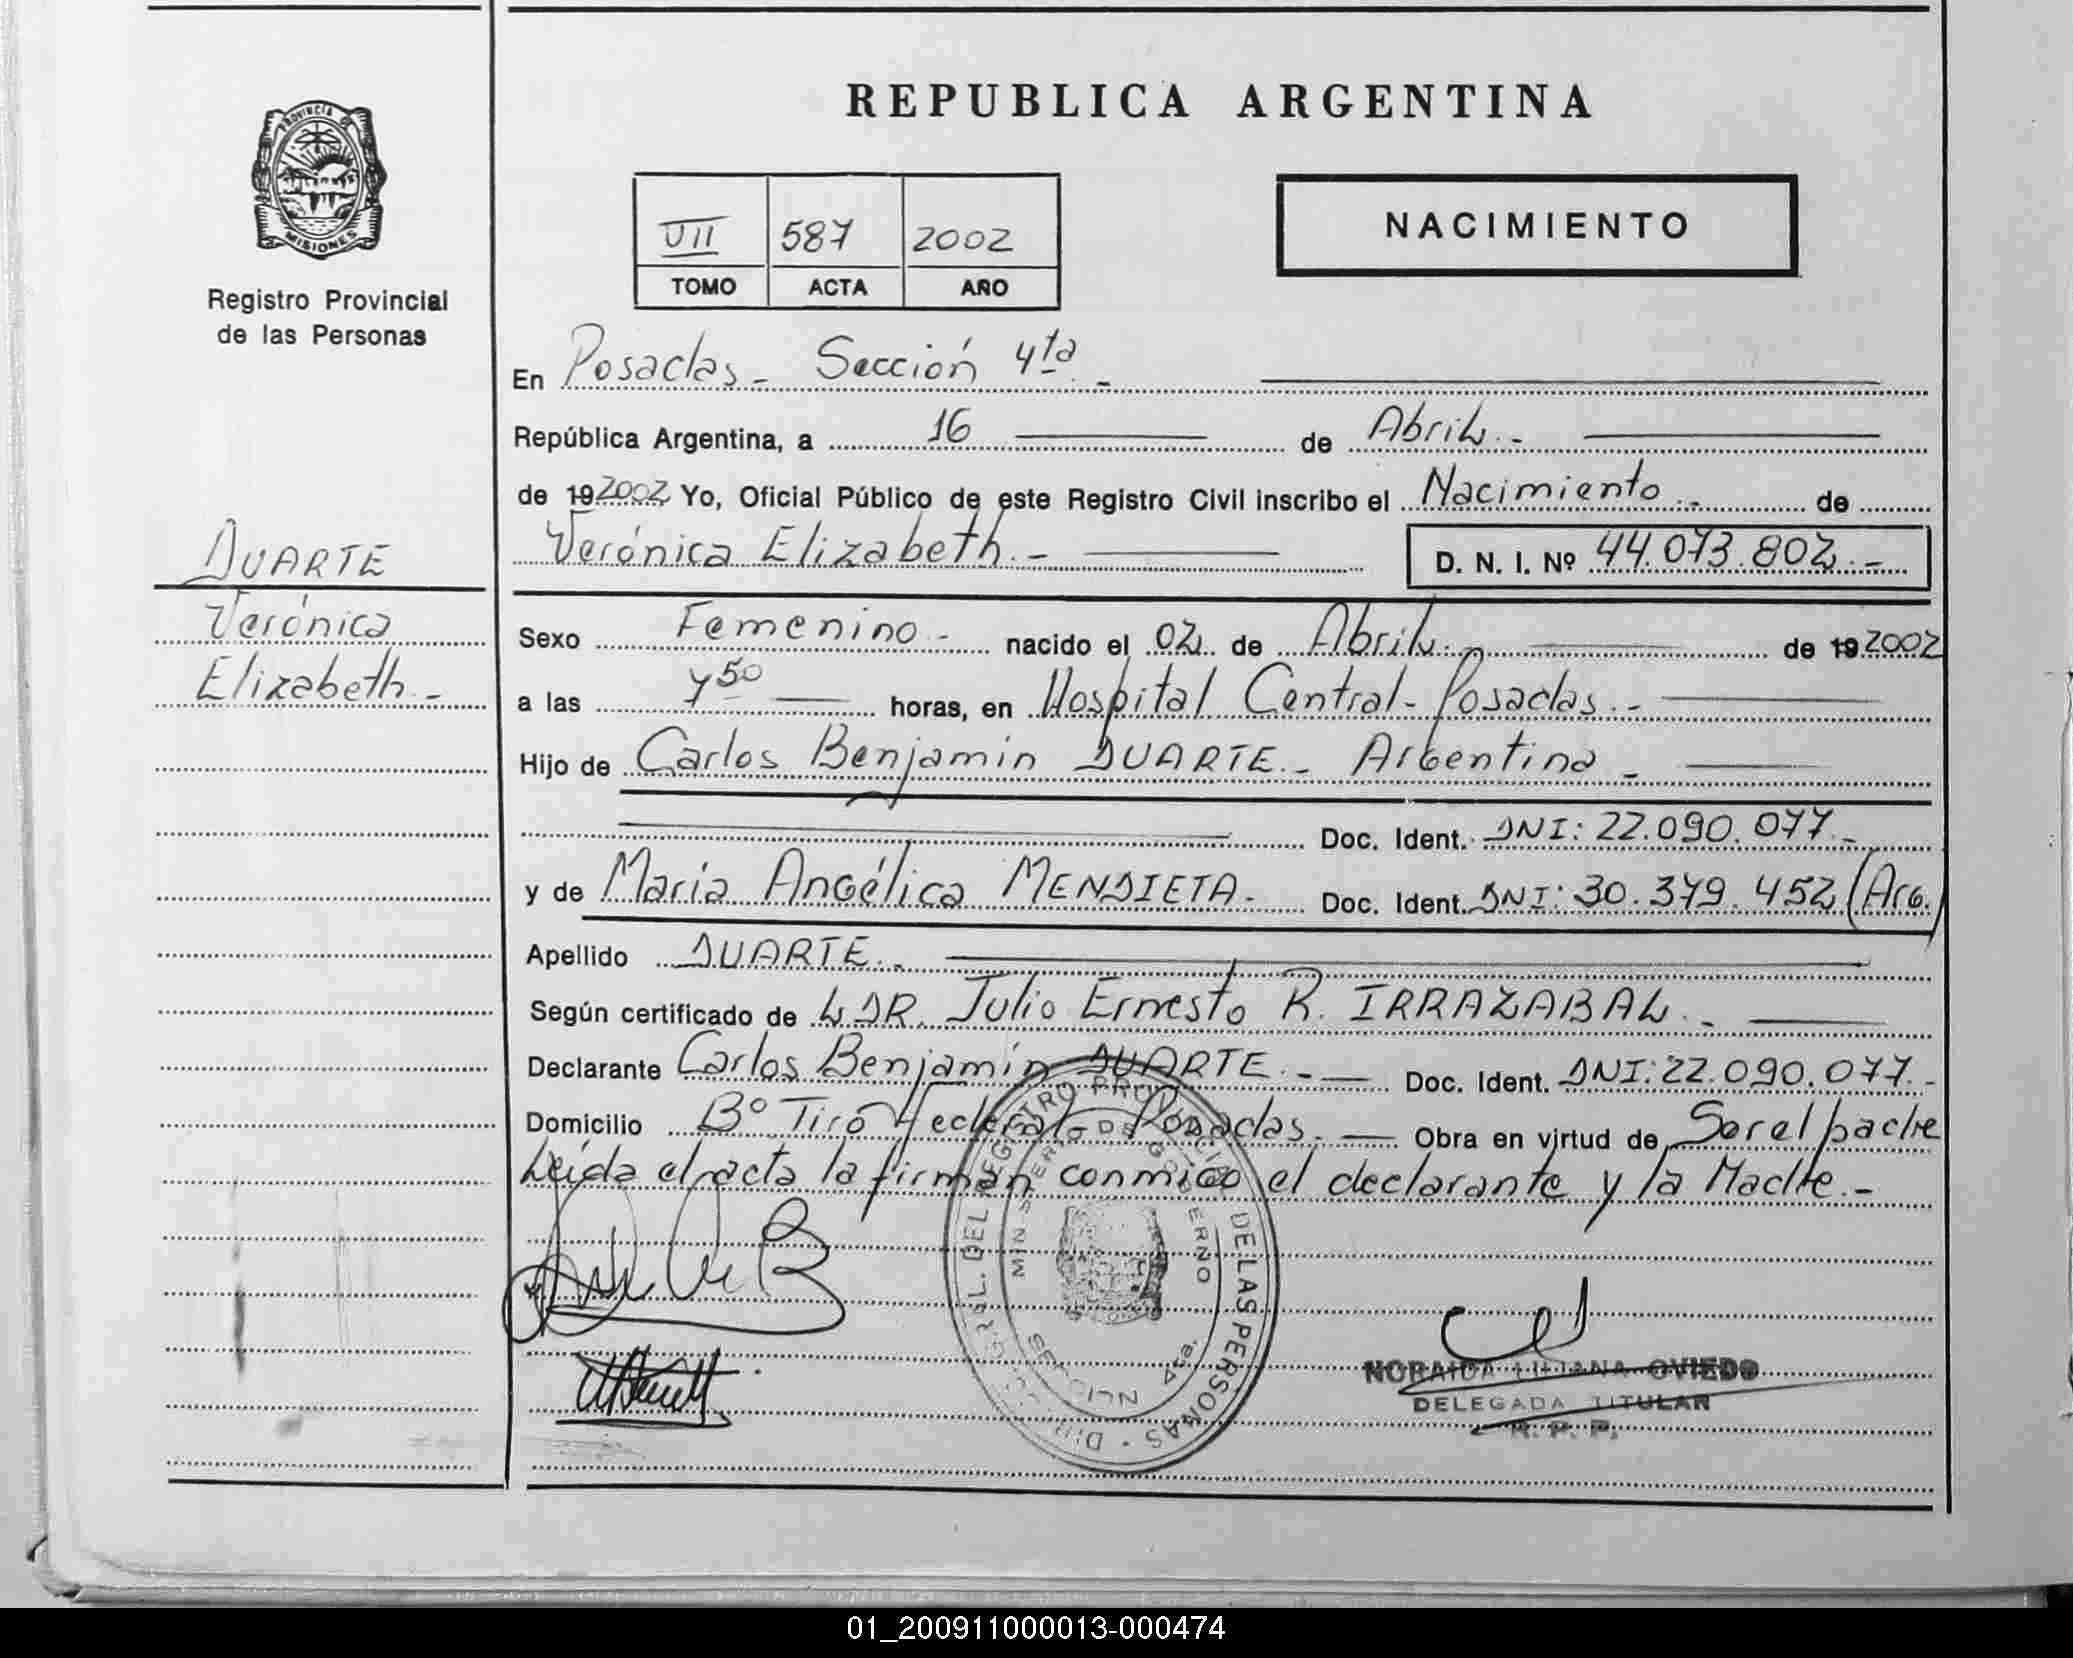 REPUBLICA ARGENTINA
PROVINCIA DE
MISIONES
Registro Provincial
de las Personas
VII 587 2002
TOMO ACTA AÑO
NACIMIENTO
En Posadas - Sección 4ta -
República Argentina, a 16 de Abril.-
de 19 2002 Yo, Oficial Público de este Registro Civil inscribo el Nacimiento.- de
Verónica Elizabeth.- D. N. I. Nº 44.073.802.-
DUARTE
Verónica
Elizabeth.-
Sexo Femenino.- nacido el 02 de Abril.- de 19 2002
a las 7 50 horas, en Hospital Central - Posadas.-
Hijo de Carlos Benjamín DUARTE.- Argentina -
Doc. Ident. DNI: 22.090.077.-
y de María Angélica MENDIETA.- Doc. Ident. DNI: 30.379.452 (Arg.)
Apellido DUARTE.-
Según certificado de L DR. Julio Ernesto R. IRRAZABAL.-
Declarante Carlos Benjamín DUARTE.- Doc. Ident. DNI: 22.090.077.-
Domicilio Bº Tiro Federal - Posadas.- Obra en virtud de Ser el padre
Leída el acta la firman conmigo el declarante y la Madre.-
REGISTRO PROVINCIAL DE LAS PERSONAS
MINISTERIO DE GOBIERNO
4ta.
NORAIDA LILIANA OVIEDO
DELEGADA TITULAR
R. P. P.
01_200911000013-000474